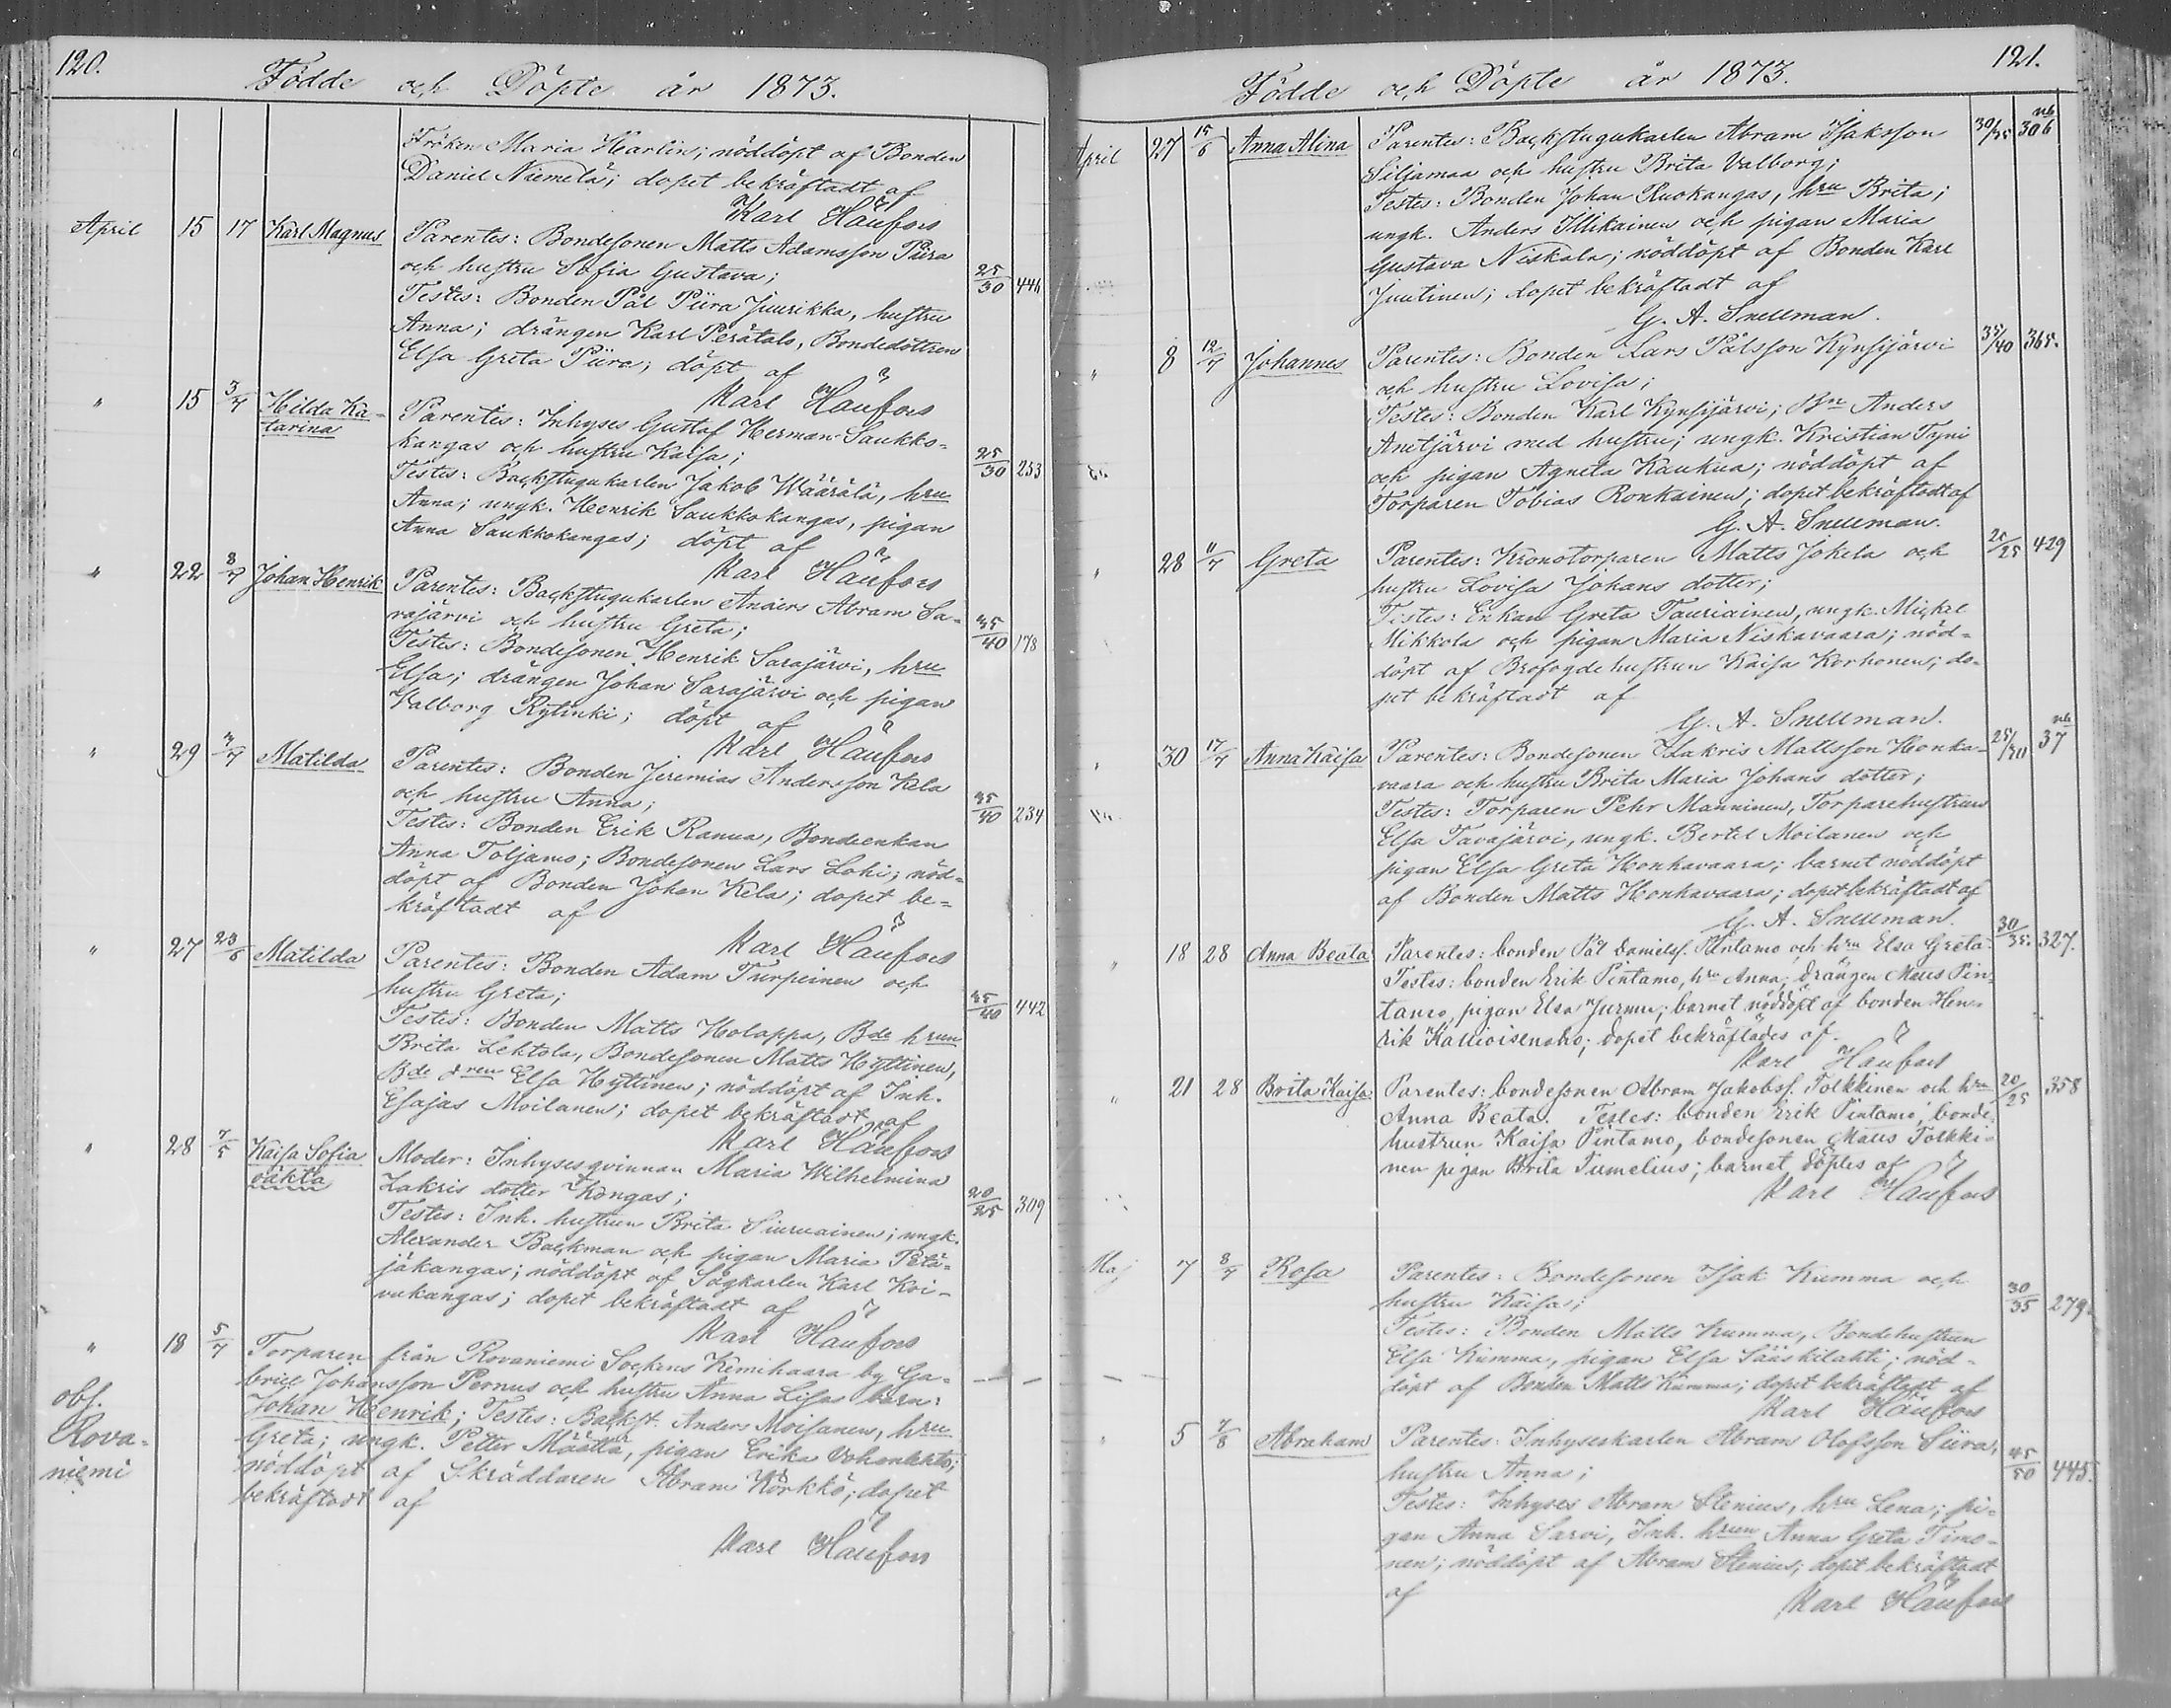 120.
Födde och Döpte år 1873.
Fröken Maria Harlin; nöddöpt af Bonden
Daniel Niemelä; dopet bekräftadt af
Karl Häufors
April 15 17 Karl Magnus Parentes: Bondesonen Matts Adamsson Piira
och hustru Sofia Gustava; 25/30 446
Testes: Bonden Pål Piira Juurikka, hustru
Anna; drängen Karl Perätalo, Bondedottren
Elsa Greta Piira; döpt af
Karl Häufors
" 15 3/7 Hilda Ka- Parentes: Inhyses Gustaf Herman Saukko-
tarina kangas och hustru Kaisa; 25/30 253
Testes: Backstugukarlen Jakob Wäärälä, hru
Anna; ungk. Henrik Saukkokangas, pigan
Anna Saukkokangas; döpt af
Karl Häufors
" 22 8/7 Johan Henrik Parentes: Backstugukarlen Anders Abram Sa-
rajärvi och hustru Greta; 35/40 178
Testes: Bondesonen Henrik Sarajärvi, hru
Elsa; drängen Johan Sarajärvi och pigan
Valborg Rytinki; döpt af
Karl Häufors
" 29 3/7 Matilda Parentes: Bonden Jeremias Andersson Kela
och hustru Anna; 35/40 234
Testes: Bonden Erik Ranua, Bondeenkan
Anna Toljamo; Bondesonen Lars Lohi; nöd-
döpt af Bonden Johan Kela; dopet be-
kräftadt af
Karl Häufors
" 27 23/6 Matilda Parentes: Bonden Adam Turpeinen och
hustru Greta; 35/40 442
Testes: Bonden Matts Holappa, Bde hrun
Brita Lehtola, Bondesonen Matts Hyttinen,
Bde dren Elsa Hyttinen; nöddöpt af Inh.
Esajas Moilanen; dopet bekräftadt af
Karl Häufors
" 28 7/5 Kaisa Sofia Moder: Inhysesqvinnan Maria Wilhelmina
oäkta Zakris dotter Kongas; 20/25 309
Testes: Inh. hustrun Brita Siuruainen; ungk.
Alexander Backman och pigan Maria Petä-
jäkangas; nöddöpt af Sågkarlen Karl Koi-
vukangas; dopet bekräftadt af
Karl Häufors
" 18 5/7 Torparen från Rovaniemi Sockens Kemihaara by Ga-
briel Johansson Pernus och hustru Anna Lisas barn:
obs. Johan Henrik; Testes: Backst. Anders Moisanen, hru
Rova- Greta; ungk. Petter Määttä, pigan Erika
niemi nöddöpt af Skräddaren Abram Körkkö; dopet
bekräftadt af
Karl Häufors
121.
Födde och Döpte år 1873.
April 27 15/6 Anna Alina Parentes: Backstugukarlen Abram Isaksson 30/35 nb 306
Siljamaa och hustru Brita Valborg;
Testes: Bonden Johan Ruokangas, hru Brita;
ungk. Anders Illikainen och pigan Maria
Gustava Niskala; nöddöpt af Bonden Karl
Juutinen; dopet bekräftadt af
G. A. Snellman.
" 8 12/7 Johannes Parentes: Bonden Lars Pålsson Kynsijärvi 35/40 365.
och hustru Lovisa;
Testes: Bonden Karl Kynsijärvi; Bn Anders
Anetjärvi med hustru; ungk. Kristian Tyni
och pigan Agneta Kaukua; nöddöpt af
Torparen Tobias Ronkainen; dopet bekräftadt af
G. A. Snellman.
" 28 11/7 Greta Parentes: Kronotorparen Matts Jokela och 20/25 429
hustru Lovisa Johans dotter;
Testes: Enkan Greta Tauriainen, ungk. Mickel
Mikkola och pigan Maria Niskavaara; nöd-
döpt af Brofogdehustrun Kaisa Korhonen; do-
pet bekräftadt af
G. A. Snellman.
" 30 17/7 Anna Kaisa Parentes: Bondesonen Zakris Mattsson Honka- 25/30 nb 37
vaara och hustru Brita Maria Johans dotter;
Testes: Torparen Pehr Manninen, Torparehustrun
Elsa Tavajärvi, ungk. Bertel Moilanen och
pigan Elsa Greta Honkavaara; barnet nöddöpt
af Bonden Matts Honkavaara; dopet bekräftadt af
G. A. Snellman.
" 18 28 Anna Beata Parentes: bonden Pål Danielss. Pintamo och hru Elsa Greta. 30/35. 327.
Testes: bonden Erik Pintamo, hru Anna, drängen Maus Pin-
tamo, pigan Elsa Jurmu; barnet nöddöpt af bonden Hen-
rik Kallioisenaho; dopet bekräftades af
Karl Häufors
" 21 28 Brita Kaisa Parentes: bondesonen Abram Jakobss. Tolkkinen och hru 20/25 358
Anna Beata. Testes: bonden Erik Pintamo, bonde-
hustrun Kaisa Pintamo, bondesonen Maus Tolkki-
nen pigan Brita Tumelius; barnet döptes af
Karl Häufors
Maj 7 8/7 Rosa Parentes: Bondesonen Isak Kumma och
hustru Kaisa; 30/35 279.
Testes: Bonden Matts Kumma, Bondehustrun
Elsa Kumma, pigan Elsa Sääskilahti; nöd-
döpt af Bonden Matts Kumma; dopet bekräftadt af
Karl Häufors
" 5 7/8 Abraham Parentes: Inhyseskarlen Abram Olofsson Siira,
hustru Anna; 45/50 445.
Testes: Inhyses Abram Stenius, hru Lena; pi-
gan Anna Sarvi, Inh. hrun Anna Greta Timo-
nen; nöddöpt af Abram Stenius; dopet bekräftadt
af
Karl Häufors